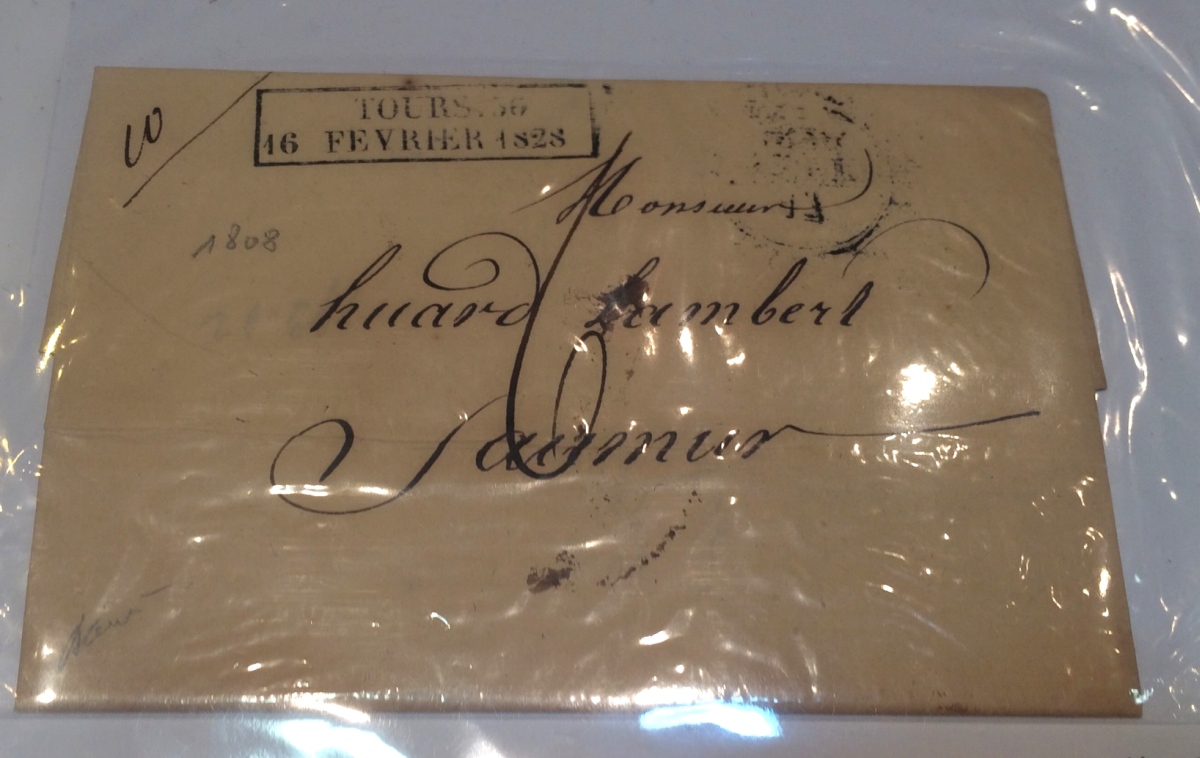 TOURS. 36
16 FEVRIER 1828
Monsieur
1808
huard Lambert
6
Saumur